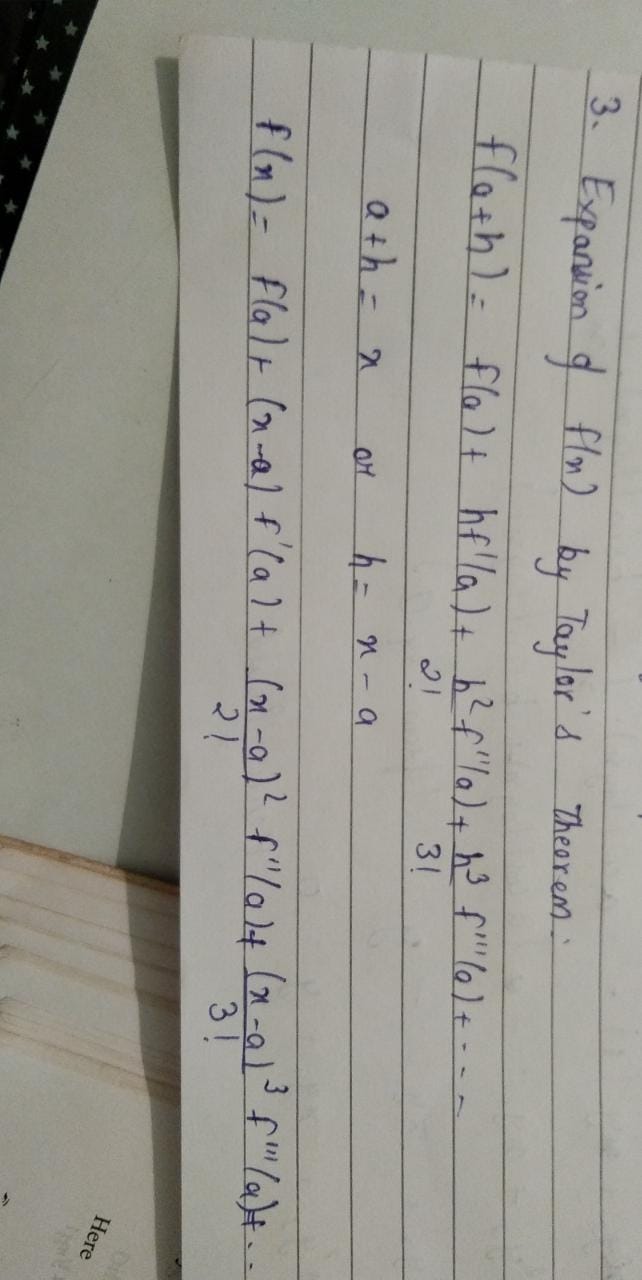 3. Expansion of f(x) by Taylor's Theorem:
f(a+h) = f(a) + hf'(a) + h²/2! f''(a) + h³/3! f'''(a) + ---
a+h = x or h = x - a
f(x) = f(a) + (x-a) f'(a) + (x-a)²/2! f''(a) + (x-a)³/3! f'''(a) + ..
Here